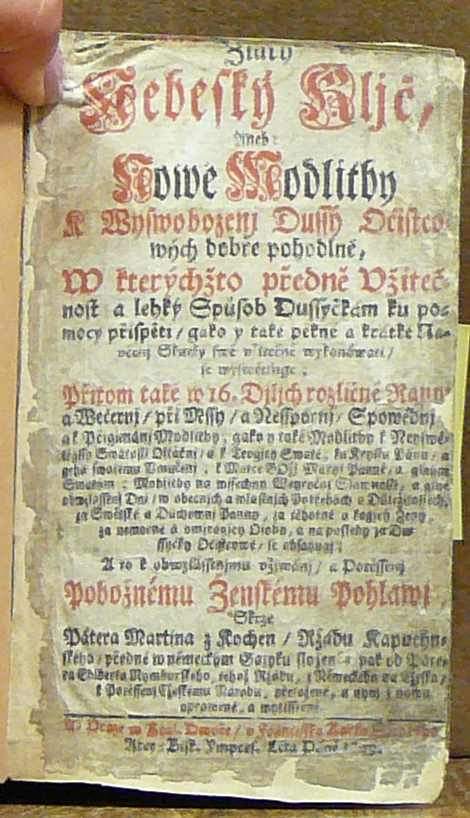 Zlatý
Nebeský Kljč,
Aneb:
Nowé Modlitby
K Wyswobozenj Dussý Očistco-
wých dobře pohodlné,
W kterýchžto předně Vžiteč-
nost a lehký Spůsob Dussyčkám ku po-
mocy přispěti / gako y také pěkné a krátké Na-
wykonáwati /
se wyswětluge.
Přitom také w 16. Djljch rozličné Rannj
a Wečernj / při Mssy / a Nesspornj / Spowědnj
a k Přigjmánj Modlitby / gako y také Modlitby k Neyswě-
těgssý Swátosti Oltářnj / a k Trogicy Swaté, ku Krystu Pánu / a
geho swatému Vmučenj, k Matce Božj Marygi Panně, a giným
Swatým: Modlitby na wssechny Weyročnj Slawnosti, a giné
obzwlásstnj Dni / w obecných a wlastnjch Potřebách a Důležitostech,
za Swětské a Duchownj Panny, za těhotné a
za nemocné a vmjragjcý Osoby, a na posledy za Du-
ssyčky Očistcowé / se obsahugj:
A to k obzwlásstnjmu vžjwánj / a Potěssenj
Pobožnému Ženskému Pohlawj
Skrze
Pátera Martina z Kochen / Ržádu Kapucýn-
ského / předně w německým Gazyku složené a pak od Páte-
ra Edilberta Nymburského, tehož Ržádu, z Německého na Česko /
k Potěssenj Českému Národu, přeložené, a nynj z nowu
oprawené, a wytisstěné.
W Praze w / v Frantisska
Arcy-Bisk. Impres. Léta Páně